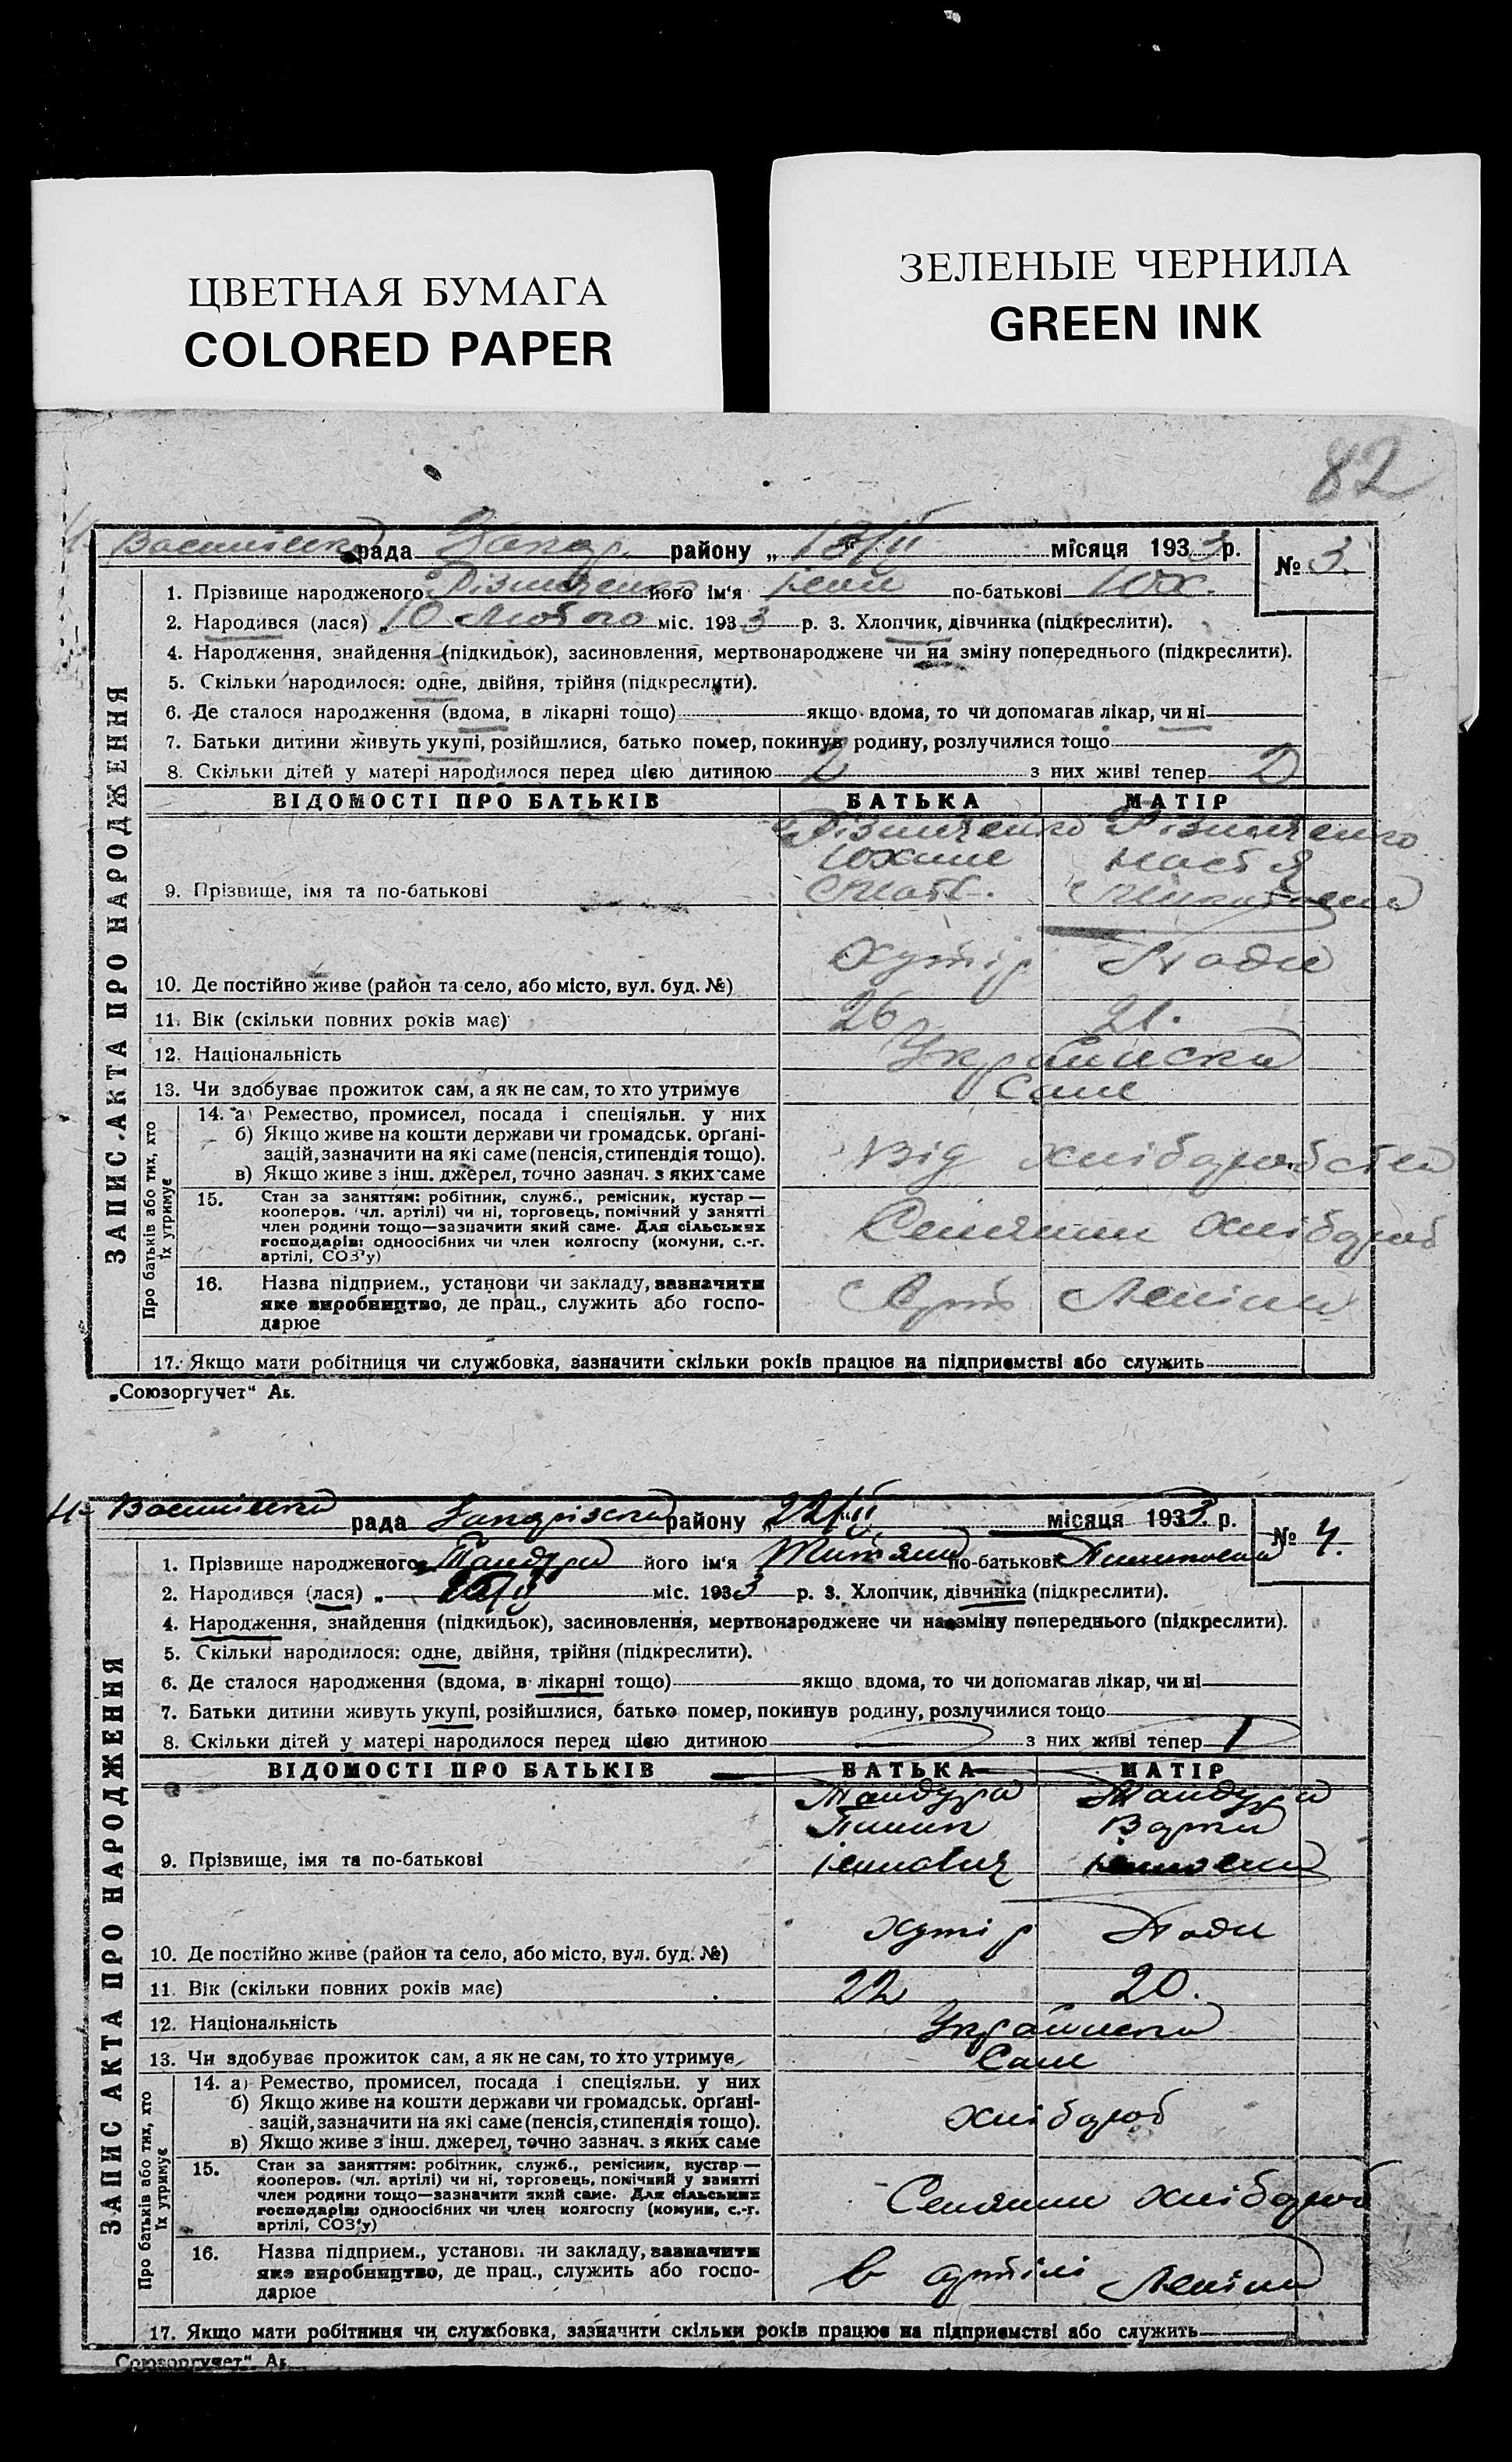 ЦВЕТНАЯ БУМАГА
COLORED PAPER
ЗЕЛЕНЫЕ ЧЕРНИЛА
GREEN INK
82
рада Запор. району „18/II місяця 1933 р. № 3.
1. Прізвище народженого його ім'я по-батькові Юх.
2. Народився (лася) „10 Лютого міс. 1933 р. 3. Хлопчик, дівчинка (підкреслити).
4. Народження, знайдення (підкидьок), засиновлення, мертвонароджене чи на зміну попереднього (підкреслити).
5. Скільки народилося: одне, двійня, трійня (підкреслити).
6. Де сталося народження (вдома, в лікарні тощо) якщо вдома, то чи допомагав лікар, чи ні
7. Батьки дитини живуть укупі, розійшлися, батько помер, покинув родину, розлучилися тощо
8. Скільки дітей у матері народилося перед цією дитиною 2 з них живі тепер 2
ЗАПИС АКТА ПРО НАРОДЖЕННЯ
ВІДОМОСТІ ПРО БАТЬКІВ БАТЬКА МАТІР
Настя
9. Прізвище, імя та по-батькові
хутір
10. Де постійно живе (район та село, або місто, вул. буд. №)
11. Вік (скільки повних років має) 26 21.
12. Національність Українська
13. Чи здобуває прожиток сам, а як не сам, то хто утримує Сам
Про батьків або тих, хто їх утримує
14. а) Ремество, промисел, посада і спеціяльн. у них
б) Якщо живе на кошти держави чи громадськ. органі-
зацій, зазначити на які саме (пенсія, стипендія тощо).
в) Якщо живе з інш. джерел, точно зазнач. з яких саме
Від хліборобства
15. Стан за заняттям: робітник, служб., ремісник, кустар —
кооперов. (чл. артілі) чи ні, торговець, помічний у занятті
член родини тощо—зазначити який саме. Для сільських
господарів: одноосібних чи член колгоспу (комуни, с.-г.
артілі, СОЗ'у)
Селянин хлібороб
16. Назва підприєм., установи чи закладу, зазначити
яке виробництво, де прац., служить або госпо-
дарює
Арт. Леніна
17. Якщо мати робітниця чи службовка, зазначити скільки років працює на підприємстві або служить
„Союзоргучет“ Ак.
рада Запоріжська району „22/II місяця 1933 р. № 4.
1. Прізвище народженого Тандура його ім'я Титяна по-батькові Пилиповна
2. Народився (лася) „ міс. 1933 р. 3. Хлопчик, дівчинка (підкреслити).
4. Народження, знайдення (підкидьок), засиновлення, мертвонароджене чи на зміну попереднього (підкреслити).
5. Скільки народилося: одне, двійня, трійня (підкреслити).
6. Де сталося народження (вдома, в лікарні тощо) якщо вдома, то чи допомагав лікар, чи ні
7. Батьки дитини живуть укупі, розійшлися, батько помер, покинув родину, розлучилися тощо
8. Скільки дітей у матері народилося перед цією дитиною — з них живі тепер 1
ЗАПИС АКТА ПРО НАРОДЖЕННЯ
ВІДОМОСТІ ПРО БАТЬКІВ БАТЬКА МАТІР
Тандура Тандура
Пилип Варка
9. Прізвище, імя та по-батькові
хутір
10. Де постійно живе (район та село, або місто, вул. буд. №)
11. Вік (скільки повних років має) 22 20.
12. Національність Українська
13. Чи здобуває прожиток сам, а як не сам, то хто утримує Сам
Про батьків або тих, хто їх утримує
14. а) Ремество, промисел, посада і спеціяльн. у них
б) Якщо живе на кошти держави чи громадськ. органі-
зацій, зазначити на які саме (пенсія, стипендія тощо).
в) Якщо живе з інш. джерел, точно зазнач. з яких саме
хлібороб
15. Стан за заняттям: робітник, служб., ремісник, кустар —
кооперов. (чл. артілі) чи ні, торговець, помічний у занятті
член родини тощо—зазначити який саме. Для сільських
господарів: одноосібних чи член колгоспу (комуни, с.-г.
артілі, СОЗ'у)
Селянин хлібороб
16. Назва підприєм., установи чи закладу, зазначити
яке виробництво, де прац., служить або госпо-
дарює
в артілі Леніна
17. Якщо мати робітниця чи службовка, зазначити скільки років працює на підприємстві або служить
Союзоргучет“ Ак.